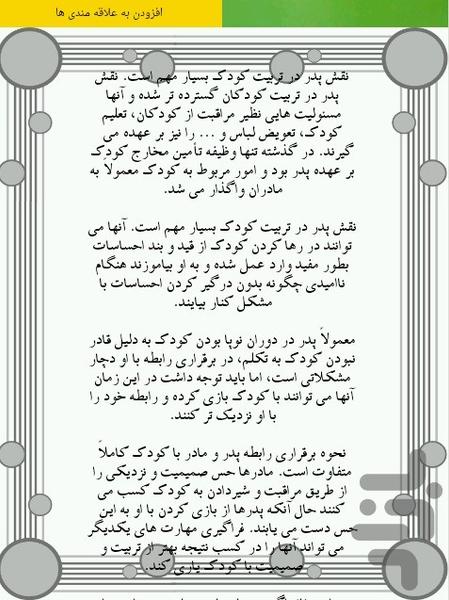 افزودن به علاقه مندی ها
نقش پدر در تربیت کودک بسیار مهم است. نقش
پدر در تربیت کودکان گسترده تر شده و آنها
مسئولیت هایی نظیر مراقبت از کودکان، تعلیم
کودک، تعویض لباس و ... را نیز بر عهده می
گیرند. در گذشته تنها وظیفه تأمین مخارج کودک
بر عهده پدر بود و امور مربوط به کودک معمولاً به
مادران واگذار می شد.
نقش پدر در تربیت کودک بسیار مهم است. آنها می
توانند در رها کردن کودک از قید و بند احساسات
بطور مفید وارد عمل شده و به او بیاموزند هنگام
ناامیدی چگونه بدون درگیر کردن احساسات با
مشکل کنار بیایند.
معمولاً پدر در دوران نوپا بودن کودک به دلیل قادر
نبودن کودک به تکلم، در برقراری رابطه با او دچار
مشکلاتی است، اما باید توجه داشت در این زمان
آنها می توانند با کودک بازی کرده و رابطه خود را
با او نزدیک تر کنند.
نحوه برقراری رابطه پدر و مادر با کودک کاملاً
متفاوت است. مادرها حس صمیمیت و نزدیکی را
از طریق مراقبت و شیردادن به کودک کسب می
کنند حال آنکه پدرها از بازی کردن با او به این
حس دست می یابند. فراگیری مهارت های یکدیگر
می تواند آنها را در کسب نتیجه بهتر از تربیت و
صمیمیت با کودک یاری کند.